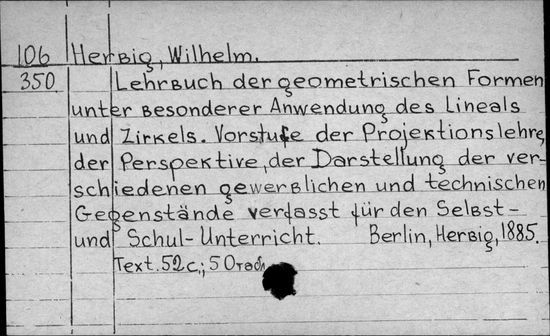 106 Herbig, Wilhelm.
350 Lehrbuch der geometrischen Formen
unter besonderer Anwendung des Lineals
und Zirkels. Vorstufe der Projektionslehre,
der Perspektive, der Darstellung der ver-
schiedenen gewerblichen und technischen
Gegenstände verfasst für den Selbst-
und Schul-Unterricht. Berlin, Herbig, 1885.
Text. 52 c.; 50 табл